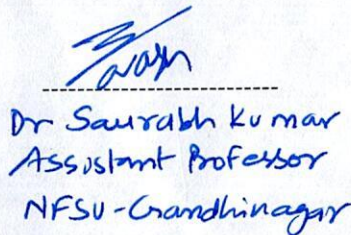 Dr Saurabh Kumar
Assistant Professor
NFSU-Gandhinagar